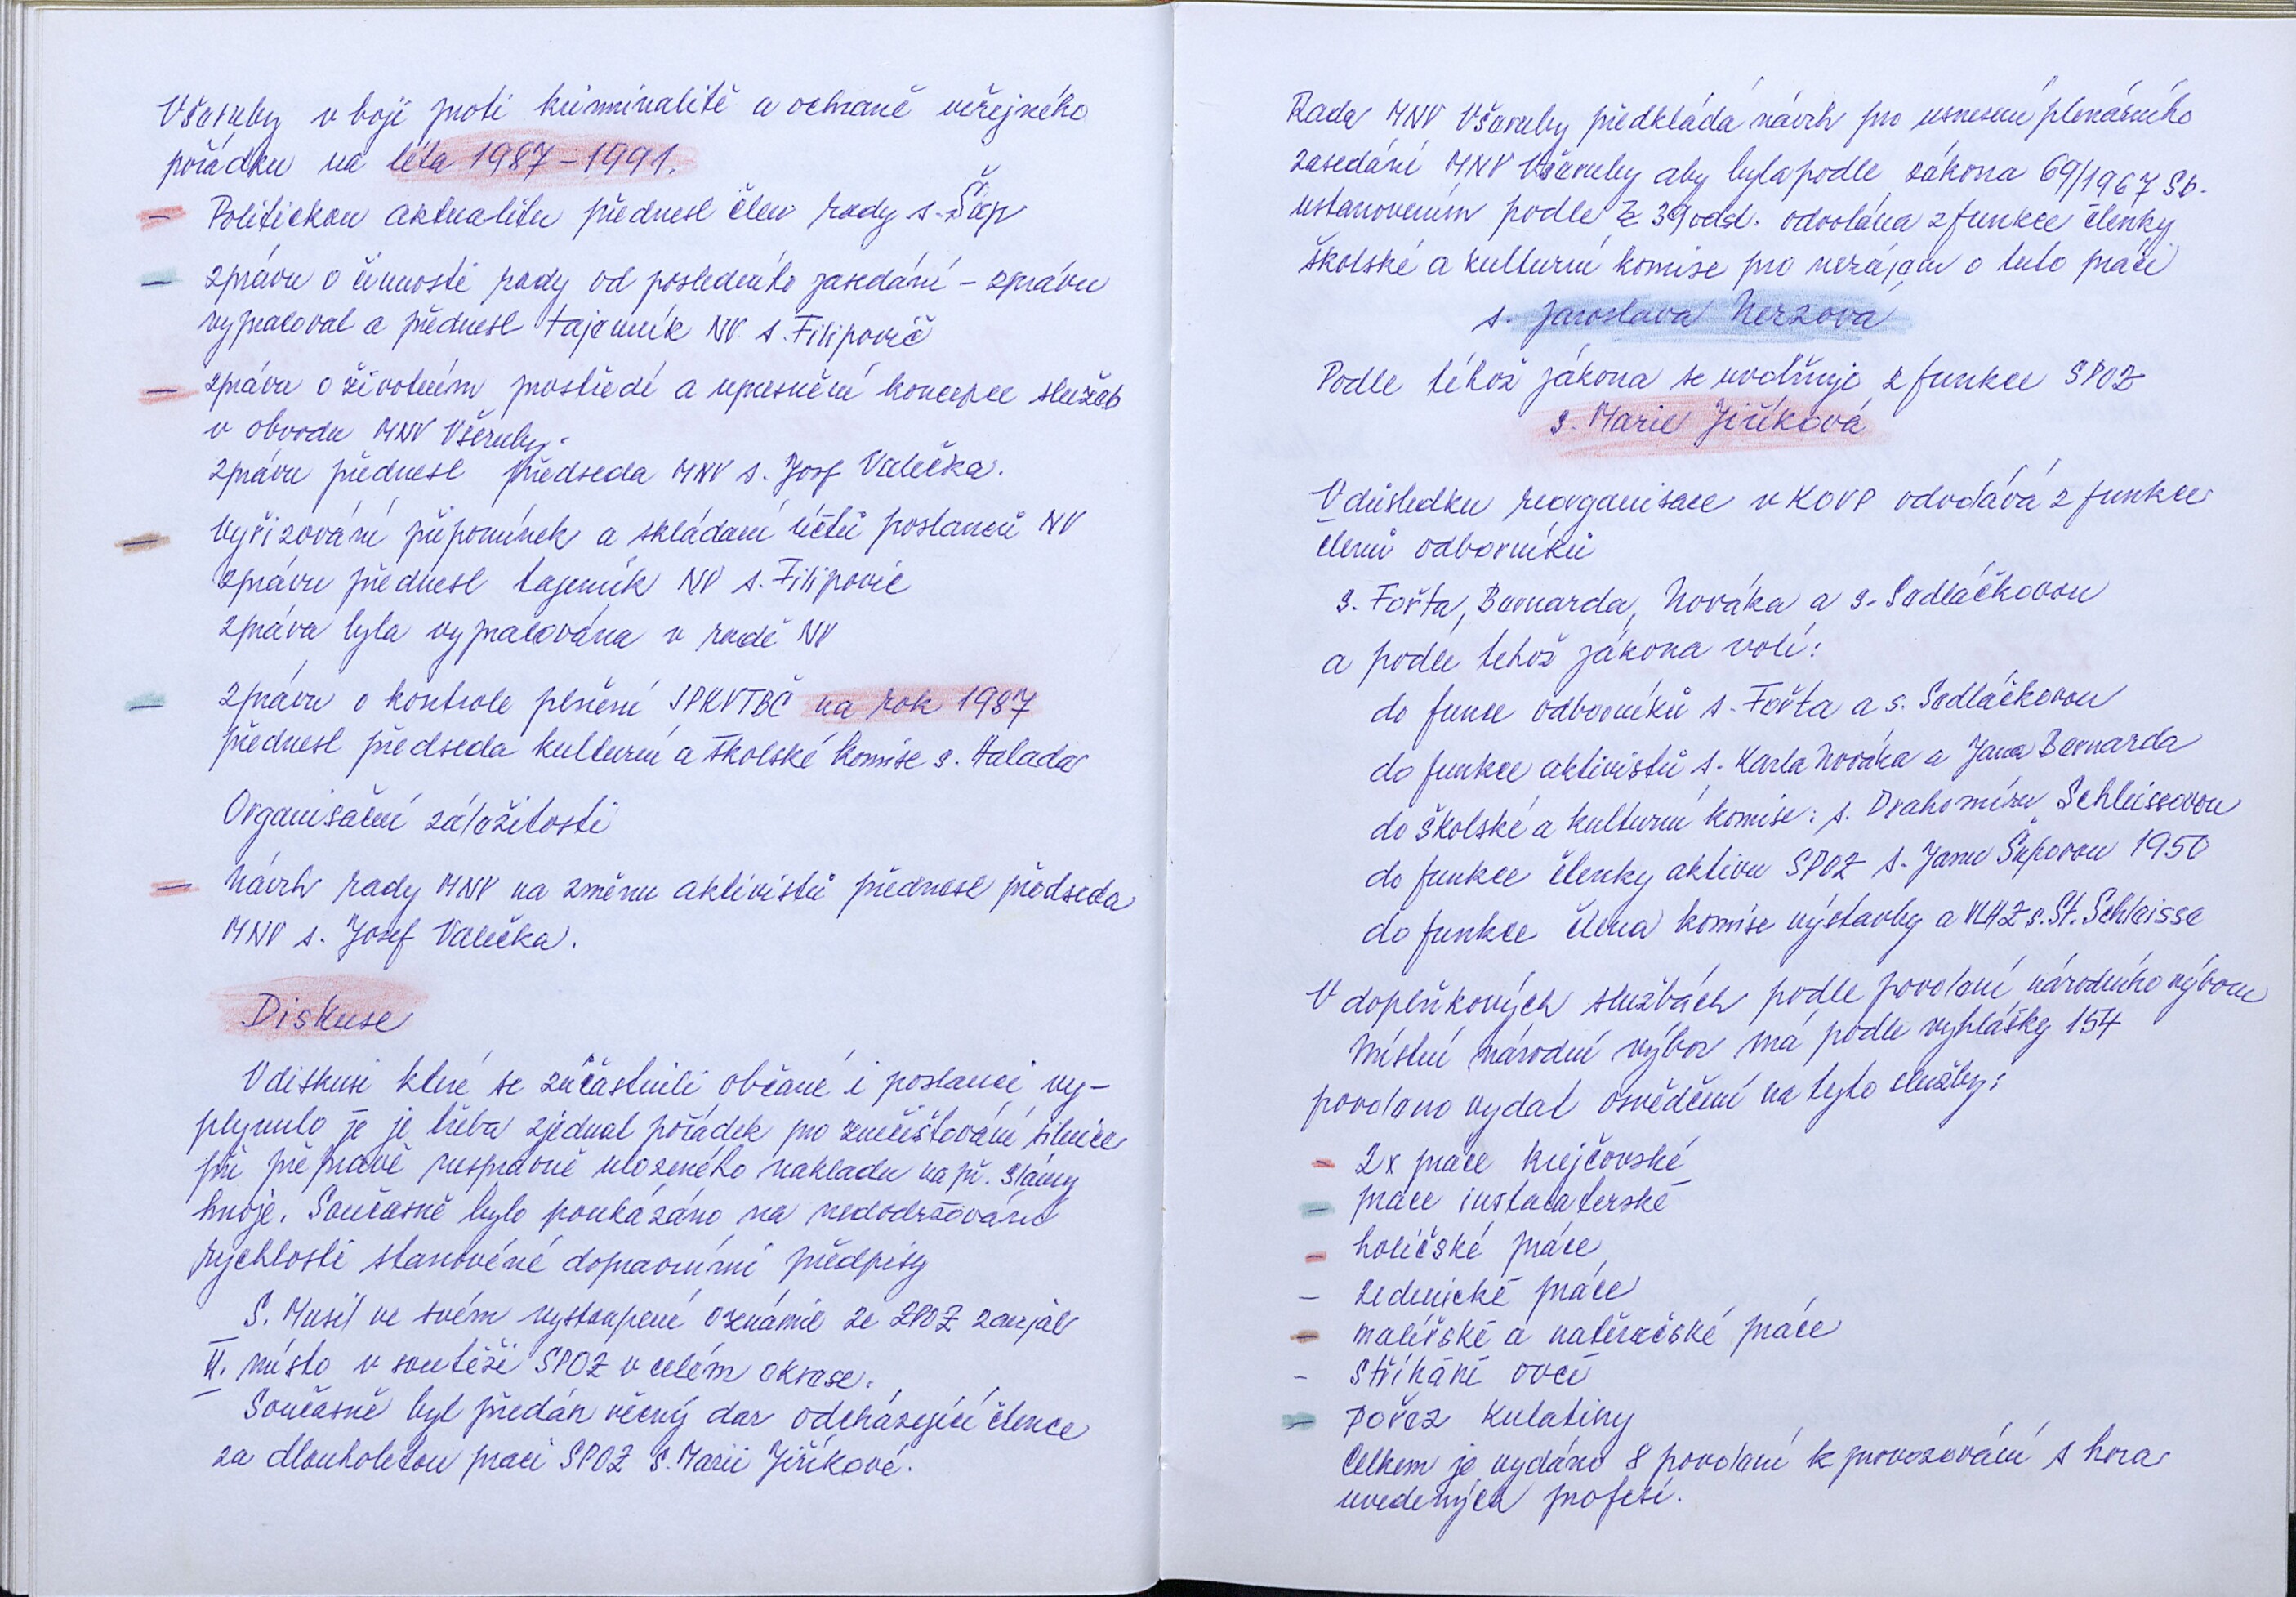 Všeruby v boji proti kriminalitě a ochraně veřejného
pořádku na léta 1987-1991.
- Politickou aktualitu přednesl člen rady s. Šup
- zprávu o činnosti rady od posledního zasedání - zprávu
vypracoval a přednesl tajemník NV s. Filipovič
- zpráva o životním prostředí a upřesnění koncepce služeb
v obvodu MNV Všeruby.
zprávu přednesl předseda MNV s. Josef Valečka.
- Vyřizování připomínek a skládaní účtů poslanců NV
zprávu přednesl tajemník NV s. Filipovič
zpráva byla vypracována v radě NV
- zprávu o kontrole plnění JPKVTBČ na rok 1987
přednesl předseda kulturní a školské komise s. Halada
Organisační záložitosti
- Návrh rady MNV na změnu aktivistů přednesl předseda
MNV s. Josef Valečka.
Diskuse
V diskusi které se zúčastnili občané i poslanci vy-
plynulo že je třeba zjednat pořádek pro znečišťování silnice
při přepravě nesprávně uloženého nakladu na př. slámy
hnoje. Současně bylo poukázáno na nedodržování
rychlosti stanovéné dopravními předpisy
S. Musil ve svém vystoupení oznámil že SPOZ zaujal
II. místo v soutěži SPOZ v celém okrese.
Současně byl předán věcný dar odcházející člence
za dlouholetou praci SPOZ s. Marii Jiříkové.
Rada MNV Všeruby předkládá návrh pro usnesení plenárního
zasedání MNV Všeruby aby byla podle zákona 69/1967 Sb.
ustanovením podle 39 odd. odvolána z funkce členky
školské a kulturní komise pro nezájem o tuto práci
s. Jaroslava Nerzová
Podle téhož zákona se uvolňuje z funkce SPOZ
s. Marie Jiříková
V důsledku reorganisace v KOVP odvolává z funkce
členů odborníků
s. Fořta, Bernarda, Nováka a s. Sedláčkovou
a podle tehož zákona volí:
do funce odborníků s. Fořta a s. Sedláčkovou
do funkce aktivistů s. Karla Nováka a Jana Bernarda
do školské a kulturní komise: s. Drahomíru Schleissovou
do funkce členky aktivu SPOZ s. Janu Šupovou 1950
do funkce člena komise výstavby a VLHZ s. St. Schleissa
V doplňkových službách podle povolení národního výboru
Místní národní výbor má podle vyhlášky 154
povoleno vydat osvědčení na tyto služby:
- 2x práce krejčovské
- práce instalaterské
- holičské práce
- zednické práce
- malířské a natěračské práce
- stříhání ovcí
- pořez kulatiny
Celkem je vydáno 8 povolení k provozování s hora
uvedených profesí.